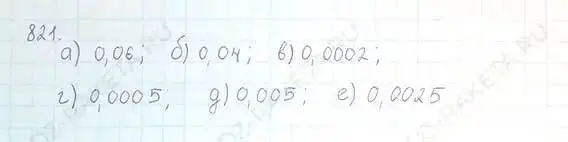 821.
а) 0,06; б) 0,04; в) 0,0002;
г) 0,0005; д) 0,005; е) 0,0025